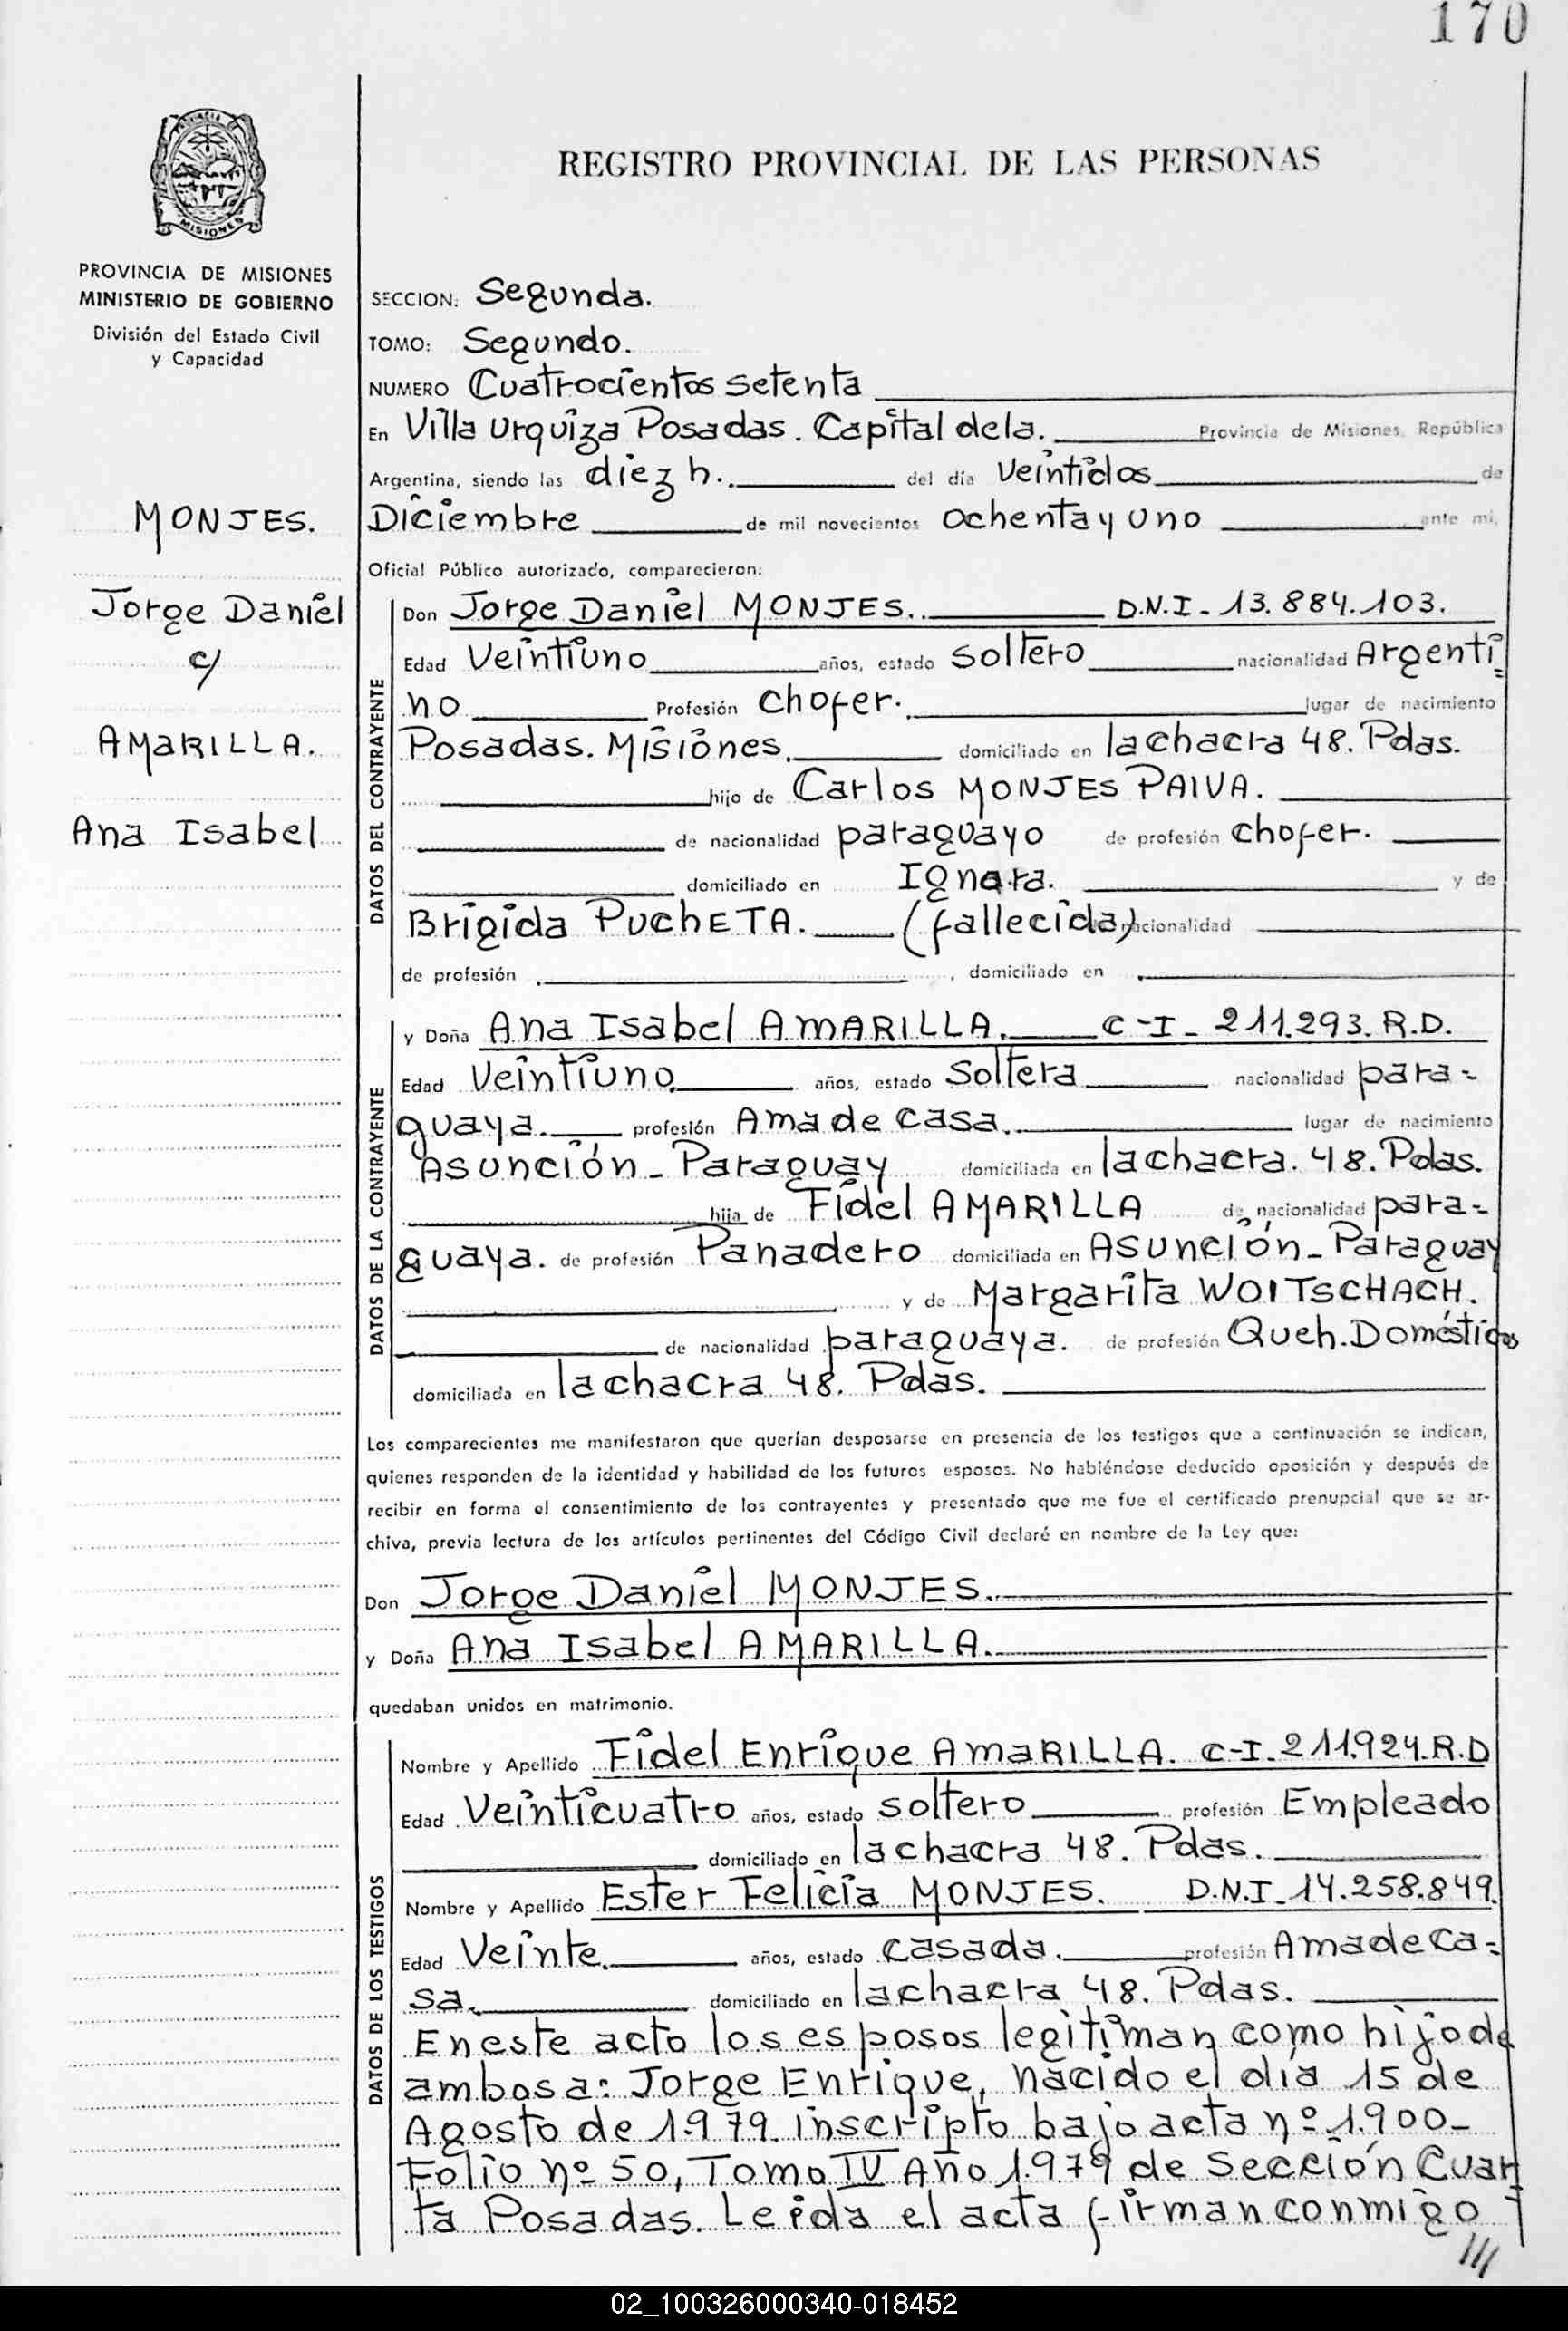 170
PROVINCIA DE MISIONES
MISIONES
PROVINCIA DE MISIONES
MINISTERIO DE GOBIERNO
División del Estado Civil
y Capacidad
MONJES.
Jorge Daniel
c/
AMARILLA.
Ana Isabel
REGISTRO PROVINCIAL DE LAS PERSONAS
SECCION: Segunda.
TOMO: Segundo.
NUMERO Cuatrocientos setenta
En Villa Urquiza Posadas. Capital de la. Provincia de Misiones, República
Argentina, siendo las diez h. del día Veintidos de
Diciembre de mil novecientos ochenta y uno ante mí,
Oficial Público autorizado, comparecieron:
DATOS DEL CONTRAYENTE
Don Jorge Daniel MONJES. D.N.I - 13.884.103.
Edad Veintiuno años, estado soltero nacionalidad Argenti=
no Profesión chofer. lugar de nacimiento
Posadas. Misiones. domiciliado en la chacra 48. Pdas.
hijo de Carlos MONJES PAIVA.
de nacionalidad paraguayo de profesión chofer.
domiciliado en Ignora. y de
Brigida PUCHETA. (fallecida) nacionalidad
de profesión , domiciliado en
DATOS DE LA CONTRAYENTE
y Doña Ana Isabel AMARILLA. C-I- 211.293. R.D.
Edad Veintiuno años, estado soltera nacionalidad para=
guaya. profesión Ama de casa. lugar de nacimiento
Asunción - Paraguay domiciliada en la chacra. 48. Pdas.
hija de Fidel AMARILLA de nacionalidad para=
guaya. de profesión Panadero domiciliada en Asunción - Paraguay
y de Margarita WOITSCHACH.
de nacionalidad paraguaya. de profesión Queh. Domésticos
domiciliada en la chacra 48. Pdas.
Los comparecientes me manifestaron que querían desposarse en presencia de los testigos que a continuación se indican,
quienes responden de la identidad y habilidad de los futuros esposos. No habiéndose deducido oposición y después de
recibir en forma el consentimiento de los contrayentes y presentado que me fue el certificado prenupcial que se ar-
chiva, previa lectura de los artículos pertinentes del Código Civil declaré en nombre de la Ley que:
Don Jorge Daniel MONJES.
y Doña Ana Isabel AMARILLA.
quedaban unidos en matrimonio.
DATOS DE LOS TESTIGOS
Nombre y Apellido Fidel Enrique AMARILLA. C-I. 211.924. R.D
Edad Veinticuatro años, estado soltero profesión Empleado
domiciliado en la chacra 48. Pdas.
Nombre y Apellido Ester Felicia MONJES. D.N.I - 14.258.849.
Edad Veinte. años, estado casada. profesión Ama de Ca=
sa. domiciliado en la chacra 48. Pdas.
En este acto los esposos legitiman como hijo de
ambos a: Jorge Enrique, nacido el día 15 de
Agosto de 1.979. inscripto bajo acta nº 1.900-
Folio nº 50, Tomo IV Año 1.979 de Sección Cuar
ta Posadas. Leida el acta firman conmigo
///
02_100326000340-018452